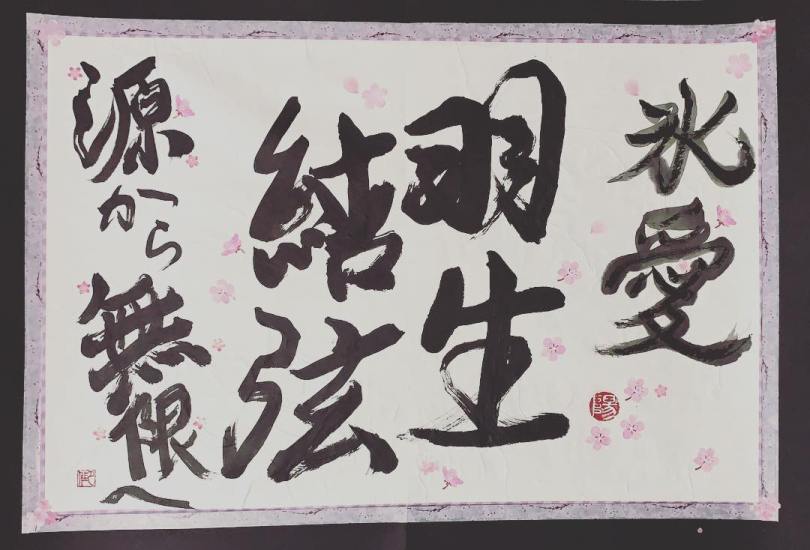 氷愛
羽生
結弦
源から無限へ
陽